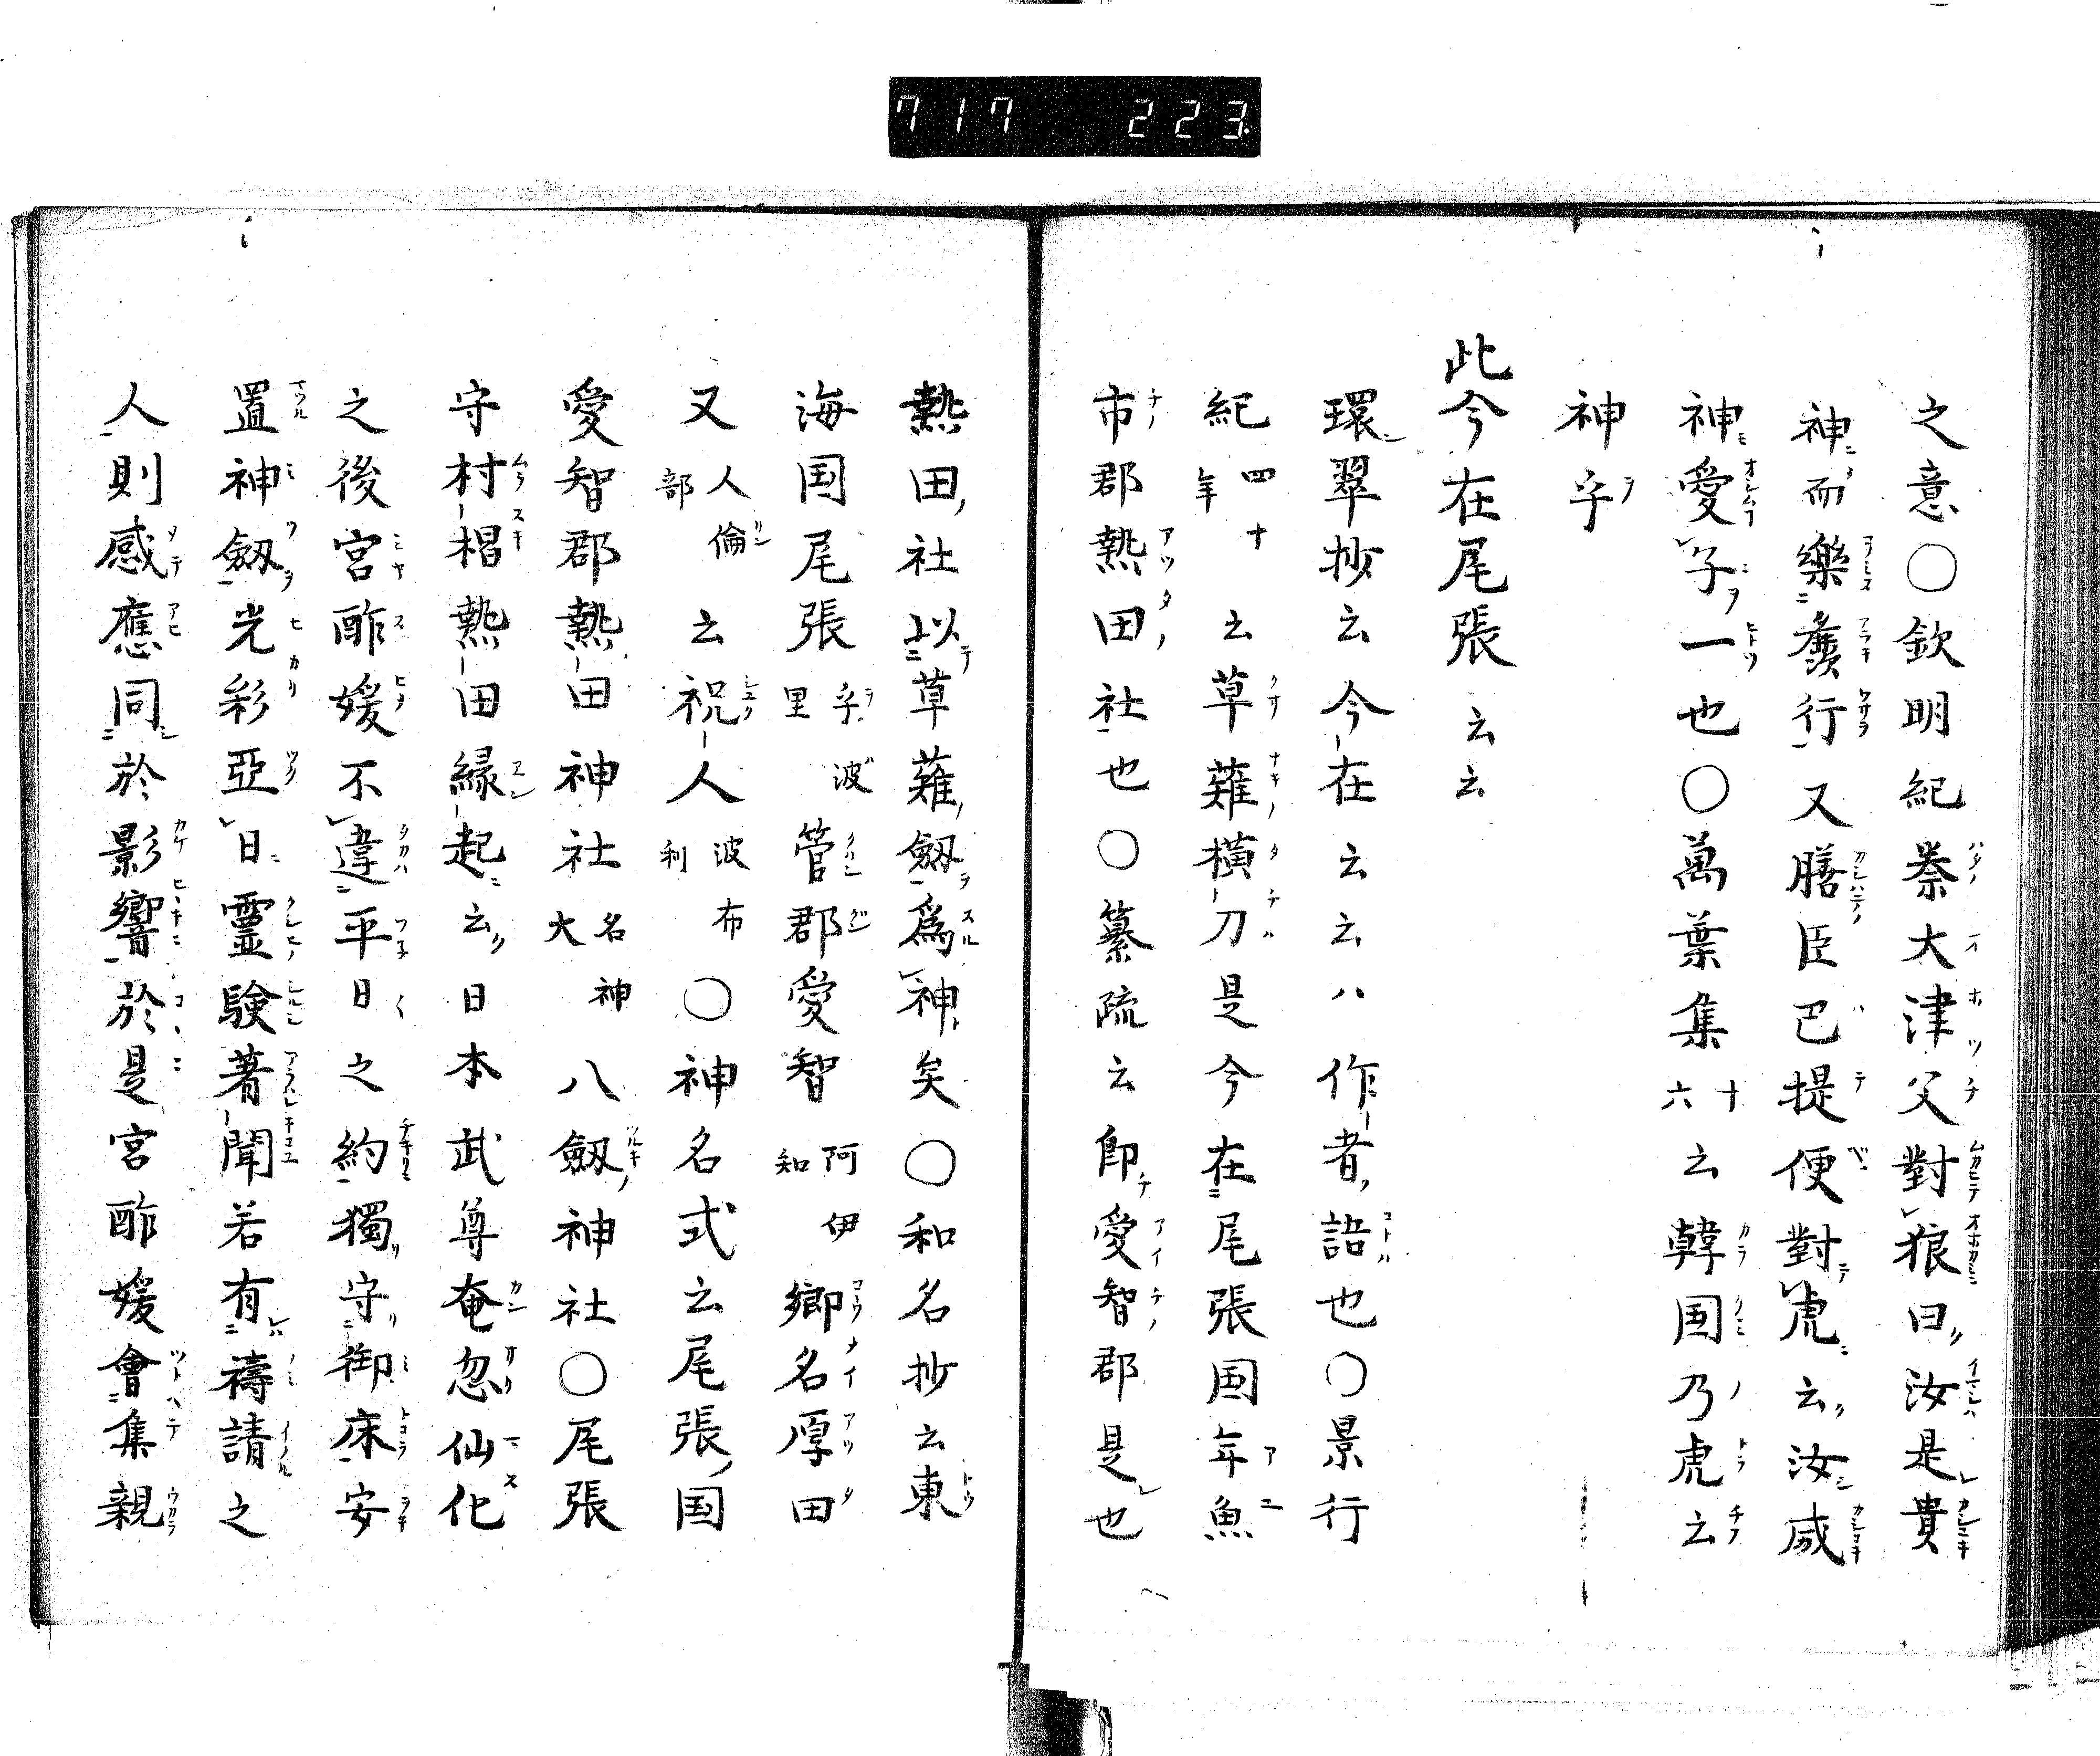 717 223
之意○欽明紀秦大津父對狼曰汝是貴
神而樂麁行又膳臣巴提便對虎云汝威
神愛子一也○萬葉集十六云韓国乃虎云
神乎
此今在尾張云云
環翠抄云今在云云八作者語也○景行
紀四十年云草薙横刀是今在尾張国年魚
市郡熱田社也○纂疏云即愛智郡是也
熱田社以草薙劔為神矣○和名抄云東
海国尾張乎波里管郡愛智阿伊知郷名厚田
又人倫部云祝人波布利○神名式云尾張国
愛智郡熱田神社名神大八劔神社○尾張
守村椙熱田縁起云日本武尊奄忽仙化
之後宮酢媛不違平日之約獨守御床安
置神劔光彩亞日靈験著聞若有禱請之
人則感應同於影響於是宮酢媛會集親